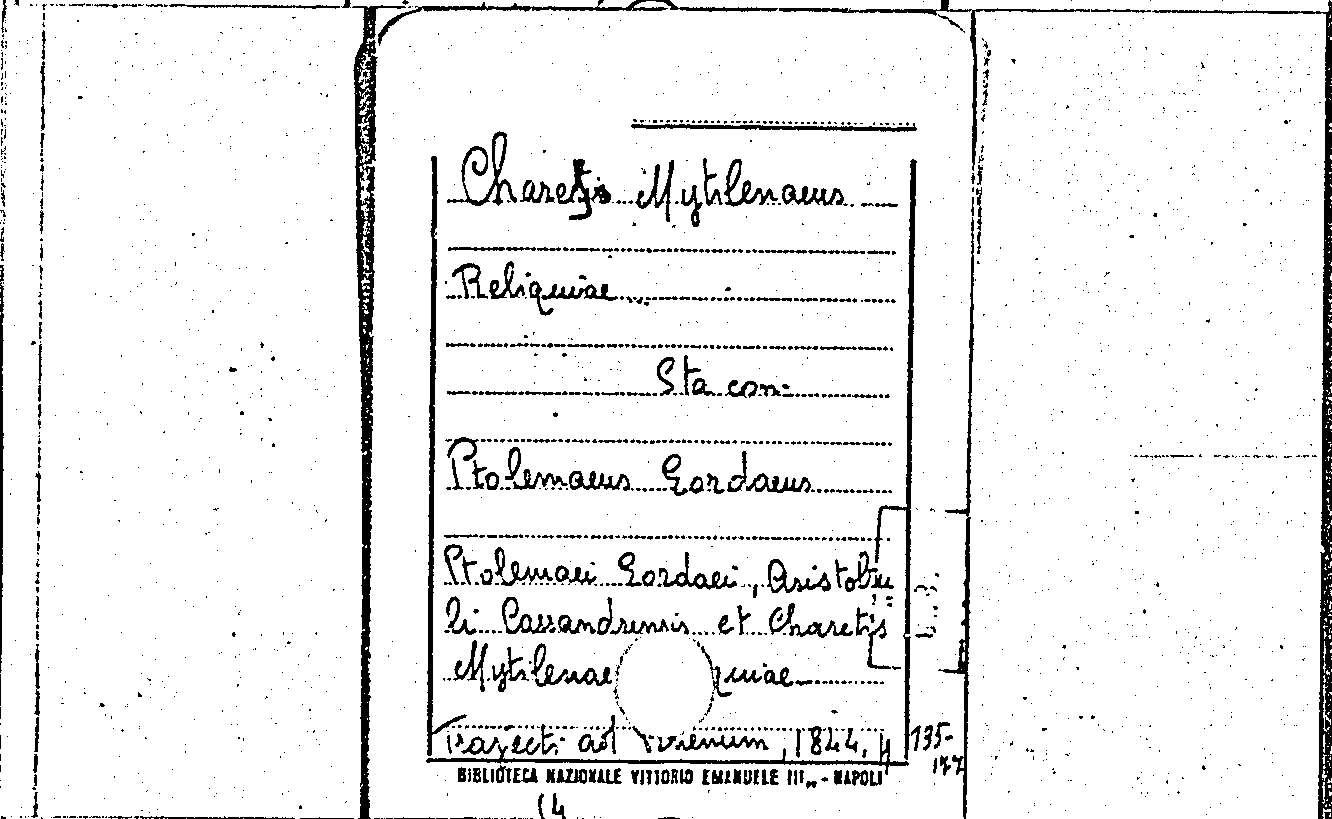 Chares Mytilenaeus
Reliquiae
Sta con:
Ptolemaeus Eordaeus
Ptolemaei Eordaei, Aristobu
li Cassandrensis et Charetis
Mytilenae quiae
Trajecti ad Rhenum, 1844, p 135-
177
BIBLIOTECA NAZIONALE VITTORIO EMANUELE III„ - NAPOLI
(4